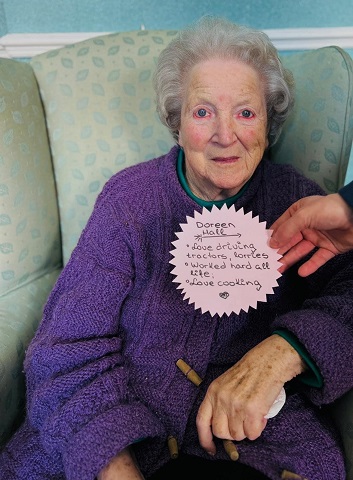 Doreen
Hall
• Love driving
tractors, lorries
• Worked hard all
life.
• Love cooking